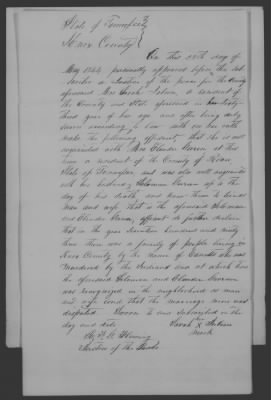 State of Tennessee
Knox County
On this 28th day of
May 1844 personally appeared before the sub-
scriber a Justice of the peace for the County
aforesaid Mrs Sarah a resident of
the County and State aforesaid in her
third year of her age and after being duly
sworn according to law doth on her oath
make the following affidavit that she is well
acquainted with Mrs at this
time a resident of the County of Knox
State of Tennessee and was also well acquainted
with her husband Solomon up to the
day of his death and knew them to live as
man and wife that is the aforesaid Solomon
and affiant do further declare
that in the year Seventeen hundred and ninety
three there was a family of people living in
Knox County by the name of who was
murdered by the Indians and at which time
the aforesaid Solomon and
was recognized in the neighborhood as man
and wife and that the marriage never was
disputed Sworn to and subscribed on the
day and date
Sarah X
mark
Fleming
Justice of the Peace